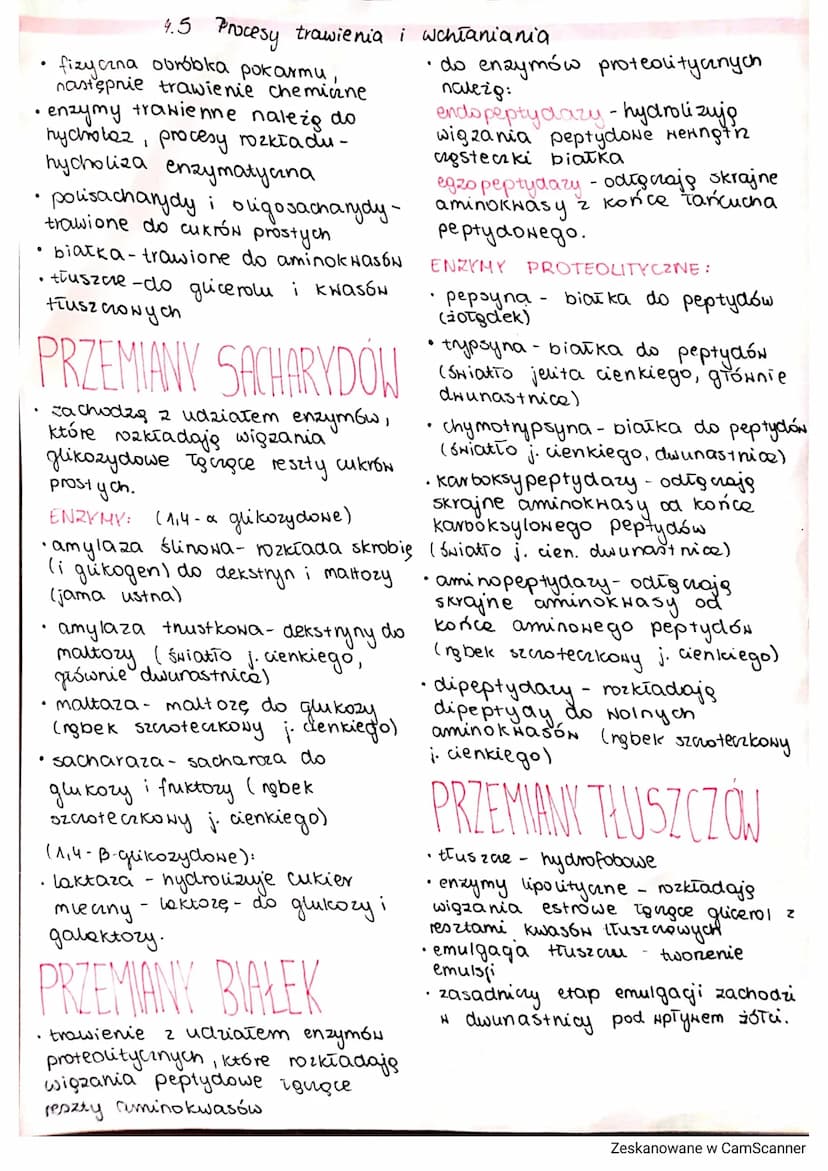 4.5 Procesy trawienia i wchłaniania
• fizyczna obróbka pokarmu,
następnie trawienie chemiczne
• enzymy trawienne należą do
hydrolaz, procesy rozkładu -
hydroliza enzymatyczna
• polisacharydy i oligosacharydy -
trawione do cukrów prostych
• białka - trawione do aminokwasów
• tłuszcze - do glicerolu i kwasów
tłuszczowych
PRZEMIANY SACHARYDÓW
• zachodzą z udziałem enzymów,
które rozkładają wiązania
glikozydowe łączące reszty cukrów
prostych.
ENZYMY: (1,4 - α glikozydowe)
• amylaza ślinowa - rozkłada skrobię
(i glikogen) do dekstryn i maltozy
(jama ustna)
• amylaza trzustkowa - dekstryny do
maltozy (światło j. cienkiego,
głównie dwunastnica)
• maltaza - maltozę do glukozy
(rąbek szczoteczkowy j. cienkiego)
• sacharaza - sacharoza do
glukozy i fruktozy (rąbek
szczoteczkowy j. cienkiego)
(1,4 - β-glikozydowe):
• laktaza - hydrolizuje cukier
mleczny - laktozę - do glukozy i
galaktozy.
PRZEMIANY BIAŁEK
• trawienie z udziałem enzymów
proteolitycznych, które rozkładają
wiązania peptydowe łączące
reszty aminokwasów
• do enzymów proteolitycznych
należą:
endopeptydazy - hydrolizują
wiązania peptydowe wewnątrz
cząsteczki białka
egzopeptydazy - odłączają skrajne
aminokwasy z końca łańcucha
peptydowego.
ENZYMY PROTEOLITYCZNE:
• pepsyna - białka do peptydów
(żołądek)
• trypsyna - białka do peptydów
(światło jelita cienkiego, głównie
dwunastnica)
• chymotrypsyna - białka do peptydów
(światło j. cienkiego, dwunastnica)
• karboksypeptydazy - odłączają
skrajne aminokwasy od końca
karboksylowego peptydów
(światło j. cien. dwunastnica)
• aminopeptydazy - odłączają
skrajne aminokwasy od
końca aminowego peptydów
(rąbek szczoteczkowy j. cienkiego)
• dipeptydazy - rozkładają
dipeptydy do wolnych
aminokwasów (rąbek szczoteczkowy
j. cienkiego)
PRZEMIANY TŁUSZCZÓW
• tłuszcze - hydrofobowe
• enzymy lipolityczne - rozkładają
wiązania estrowe łączące glicerol z
resztami kwasów tłuszczowych
• emulgacja tłuszczu - tworzenie
emulsji
• zasadniczy etap emulgacji zachodzi
w dwunastnicy pod wpływem żółci.
Zeskanowane w CamScanner